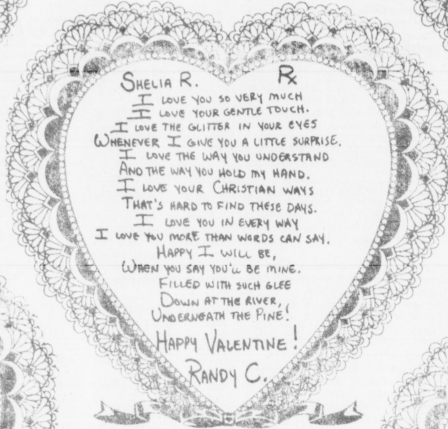 Shelia R. Rx
I love you so very much
I love your gentle touch.
I love the glitter in your eyes
Whenever I give you a little surprise.
I love the way you understand
And the way you hold my hand.
I love your Christian ways
That's hard to find these days.
I love you in every way
I love you more than words can say.
Happy I will be,
When you say you'll be mine.
Filled with such glee
Down at the river,
Underneath the Pine!
Happy Valentine!
Randy C.